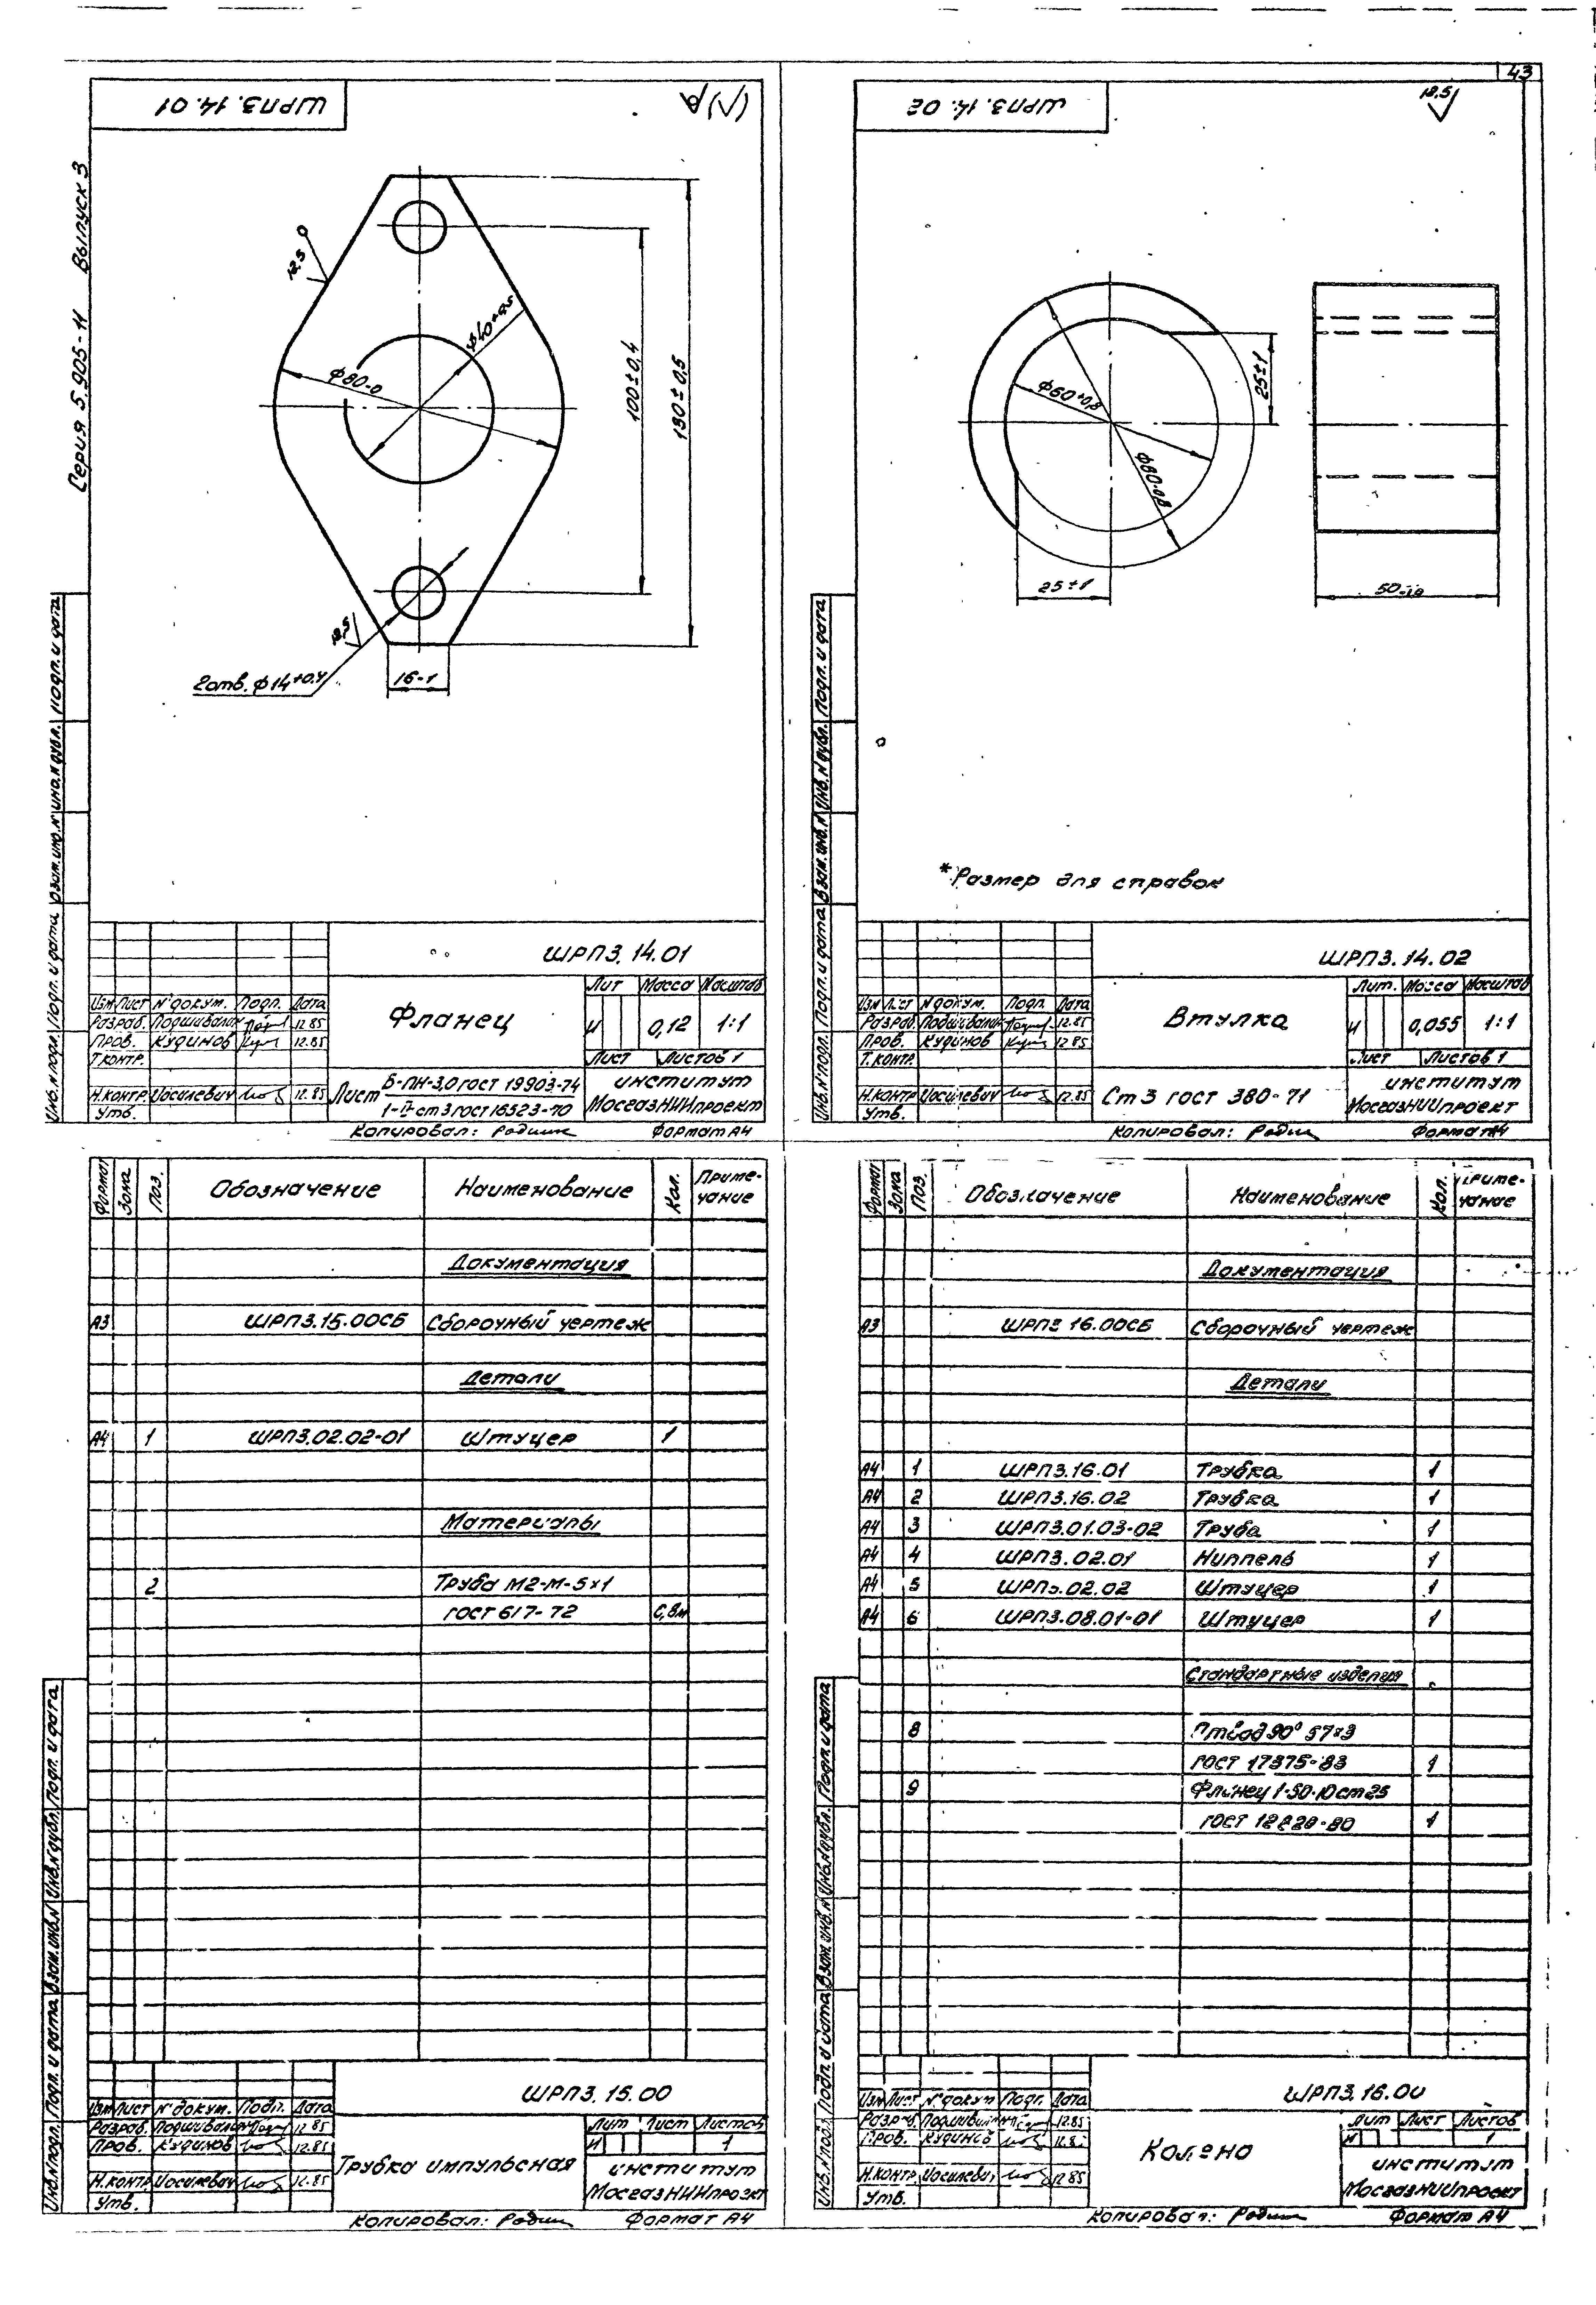 43
Серия 5.905-11 Выпуск 3
ШРПЗ.14.01
12,5
Ф40+0,5
Ф80-0
100±0,4
130±0,5
12,5
2отв. Ф14+0,4
16-1
ШРПЗ.14.01
Изм Лист N°докум. Подп. Дата
Разраб. 12.85
Пров. Кудинов 12.85
Т.контр.
Н.контр. Иосилевич 12.85
Утв.
Фланец
Лит Масса Масштаб
И 0,12 1:1
Лист Листов 1
Лист Б-ПН-3,0 гост 19903-74
1-II-ст 3 гост 16523-70
институт
МосгазНИИпроект
Копировал: Формат А4
Инв.N°подл. Подп. и дата Взам.инв.N° Инв.N°дубл. Подп. и дата
ШРПЗ.14.02
12,5
Ф60+0,8
Ф80-0,8
25±1
25±1
50-1,0
*Размер для справок
ШРПЗ.14.02
Изм Лист N докум. Подп. Дата
Разраб. 12.85
Пров. Кудинов 12.85
Т.контр.
Н.контр. Иосилевич 12.85
Утв.
Втулка
Лит. Масса Масштаб
И 0,055 1:1
Лист Листов 1
Ст 3 гост 380-71
институт
МосгазНИИпроект
Копировал: Формат А4
Инв.N°подл. Подп. и дата Взам.инв.N Инв.N дубл. Подп. и дата
Формат Зона Поз. Обозначение Наименование Кол. Примечание
Документация
А3 ШРПЗ.15.00СБ Сборочный чертеж
Детали
А4 1 ШРПЗ.02.02-01 Штуцер 1
Материалы
2 Труба М2-М-5х1
гост 617-72
ШРПЗ.15.00
Изм Лист N°докум. Подп. Дата
Разраб. 12.85
Пров. Кудинов 12.85
Н.контр. Иосилевич 12.85
Утв.
Трубка импульсная
Лит Лист Листов
И 1
институт
МосгазНИИпроэкт
Копировал: Формат А4
Инв.N°подл. Подп. и дата Взам.инв.N Инв.N дубл. Подп. и дата
Формат Зона Поз. Обозначение Наименование Кол. Примечание
Документация
А3 ШРПЗ 16.00СБ Сборочный чертеж
Детали
А4 1 ШРПЗ.16.01 Трубка 1
А4 2 ШРПЗ.16.02 Трубка 1
А4 3 ШРПЗ.01.03-02 Труба 1
А4 4 ШРПЗ.02.01 Ниппель 1
А4 5 ШРПЗ.02.02 Штуцер 1
А4 6 ШРПЗ.08.01-01 Штуцер 1
Стандартные изделия
8 Отвод 90° 57х3
ГОСТ 17375-83 1
9 Фланец 1-50-10 ст 25
ГОСТ 12820-80 1
ШРПЗ.16.00
Изм Лист N°докум Подп. Дата
Разраб. 12.85
Пров. Кудинов
Н.контр. Иосилевич 12.85
Утв.
Колено
Лит Лист Листов
И 1
институт
МосгазНИИпроект
Копировал: Формат А4
Инв.N°подл. Подп. и дата Взам.инв.N Инв.N дубл. Подп. и дата